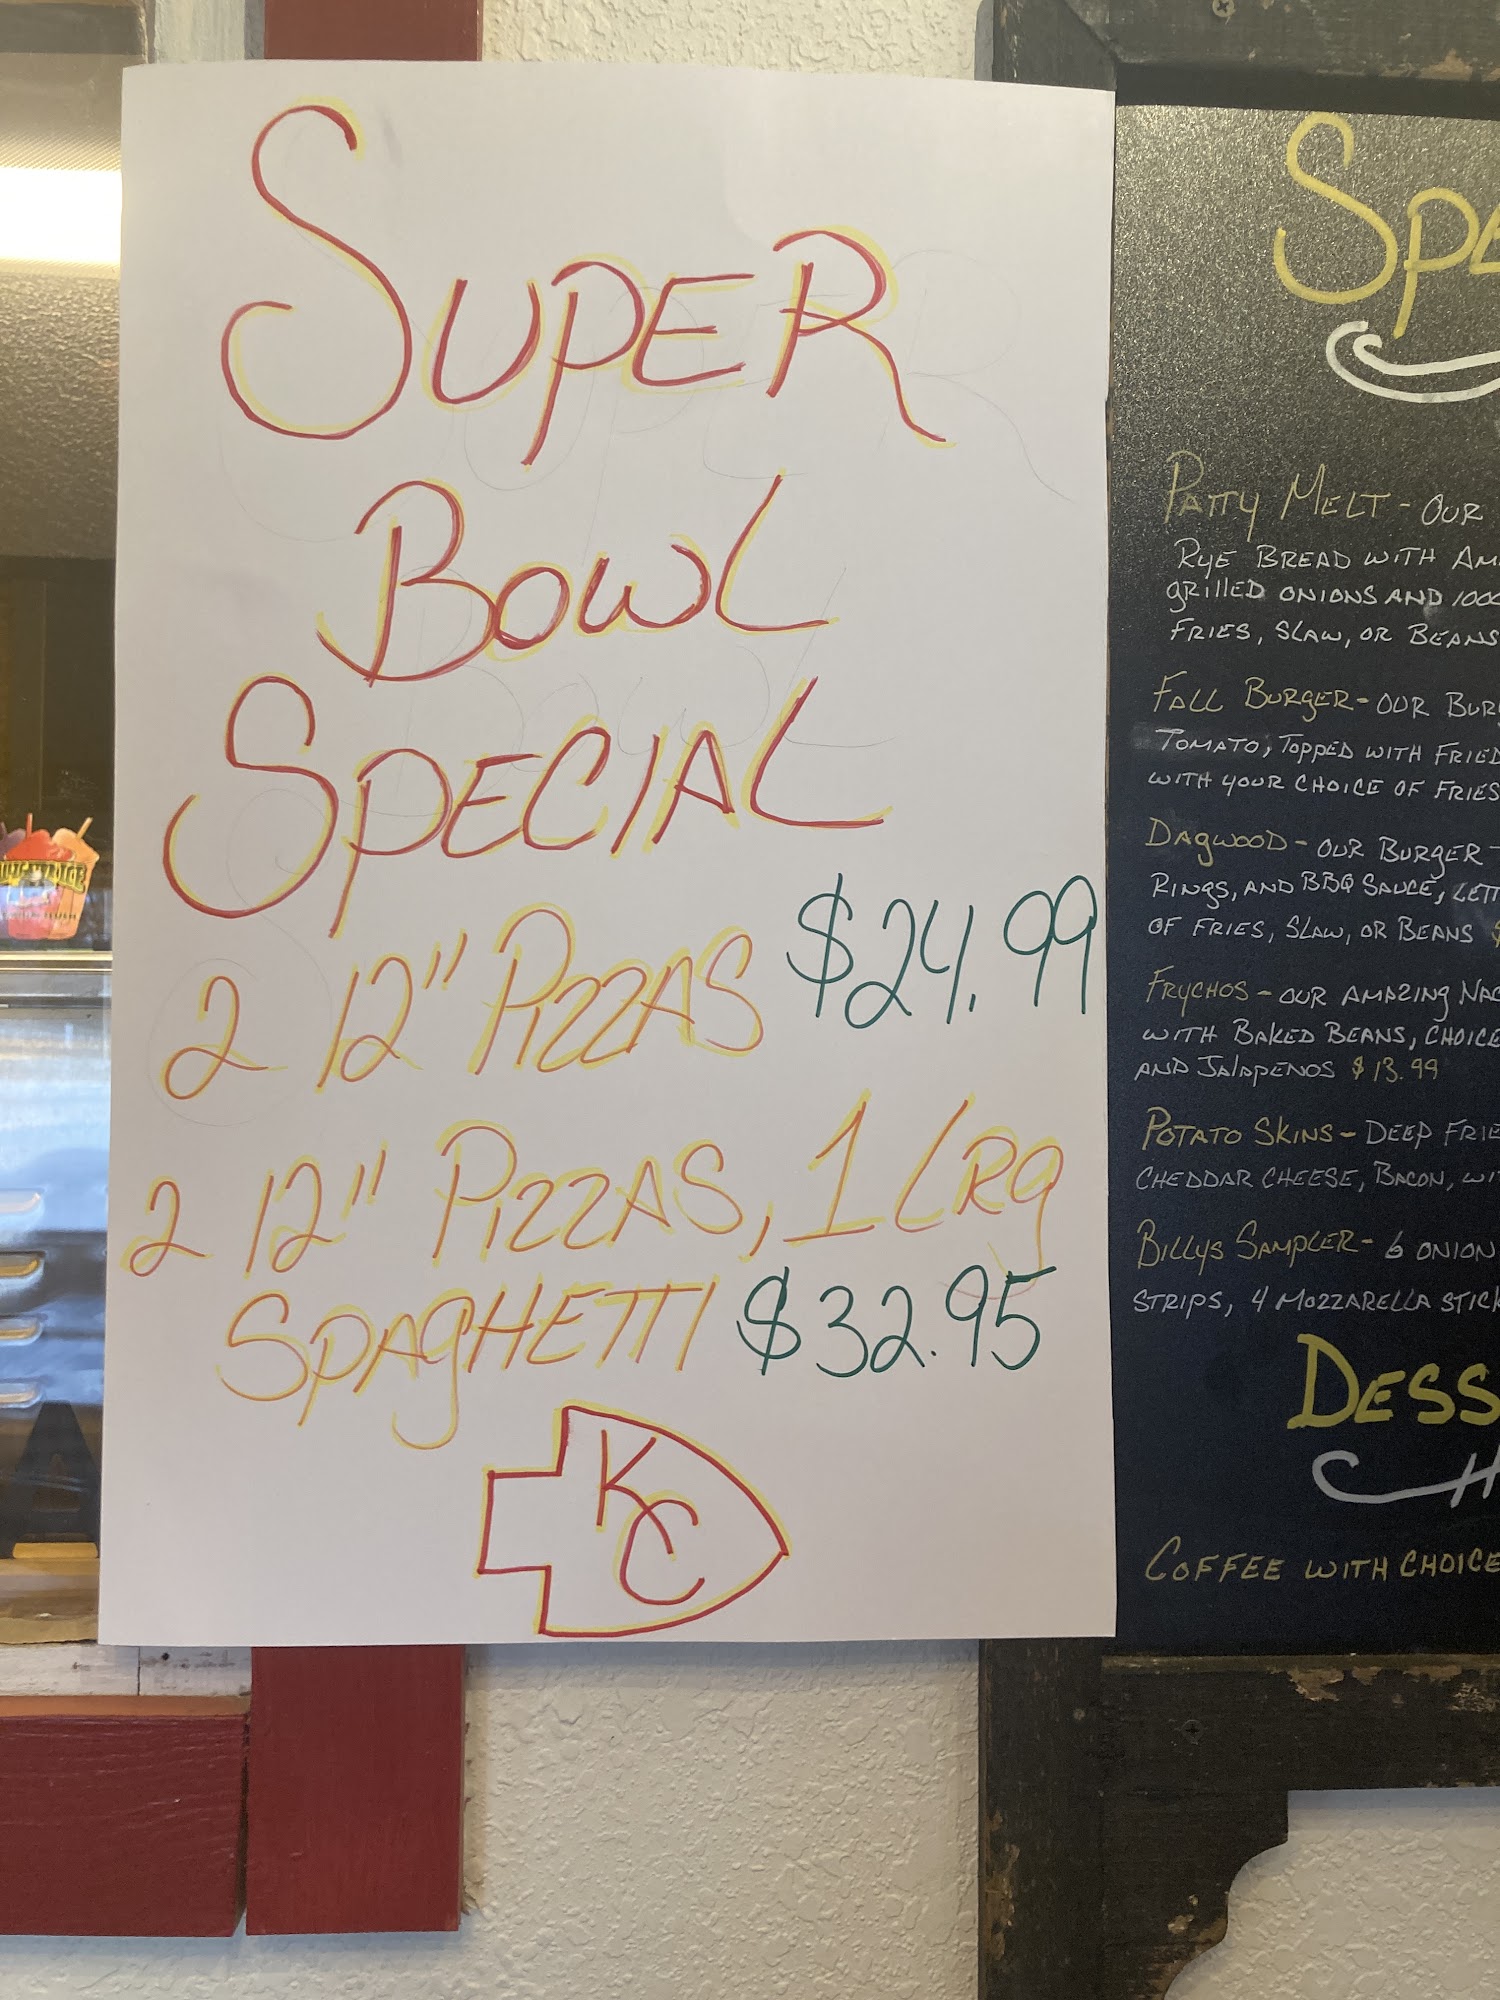 SUPER
BOWL
SPECIAL
2 12" PIZZAS $24.99
2 12" PIZZAS, 1 LRg
SPAgHETTI $32.95
KC
PATTY MELT - OUR
RYE BREAD WITH
grillED ONIONS AND
FRIES, SLAW, OR BEANS
FALL BURgER - OUR
TOMATO, TOPPED WITH FRIED
WITH YOUR CHOICE OF FRIES
DAgWOOD - OUR BURgER -
RINgS, AND BBQ SAUCE,
OF FRIES, SLAW, OR BEANS $
FRYCHOS - OUR AMAZINg
WITH BAKED BEANS, CHOICE
AND JAlAPENOS $13.99
POTATO SKINS - DEEP
CHEDDAR CHEESE, BACON,
BILLYS SAMPLER - 6 ONION
STRIPS, 4 MOZZARELLA
COFFEE WITH CHOICE